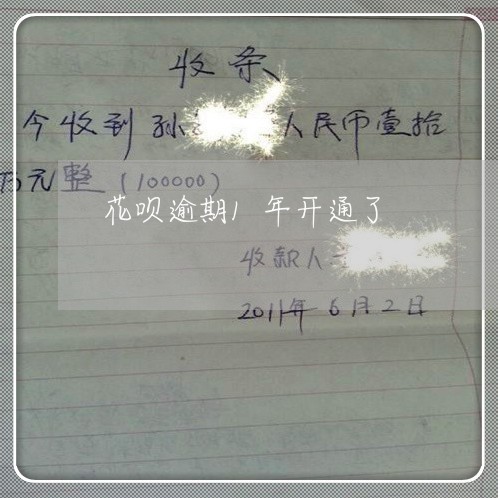 收条
今收到孙人民币壹拾
万元整(100000)
花呗逾期1年开通了
收款人
2011年6月2日